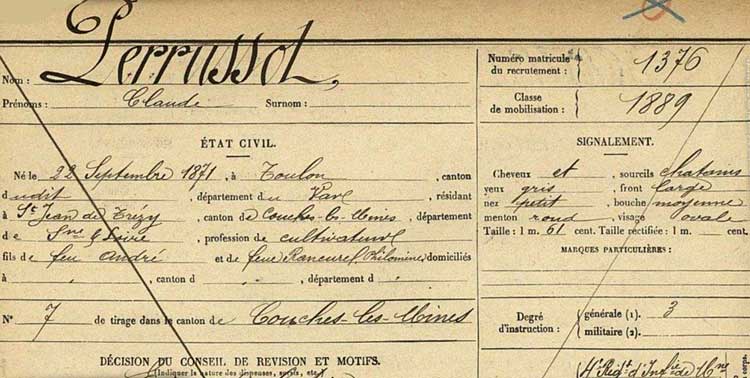 Nom : Perrussot,
Prénoms : Claude Surnom :
Numéro matricule du recrutement : 1376
Classe de mobilisation : 1889
ÉTAT CIVIL.
Né le 22 Septembre 1871, à Toulon, canton
dudit, département du Var, résidant
à St Jean de Trézy, canton de Couches-les-Mines, département
de S.ne & Loire, profession de cultivateur
fils de feu André et de feue Rancurel, Philomène, domiciliés
à , canton d , département d
N° 7 de tirage dans le canton de Couches-les-Mines
DÉCISION DU CONSEIL DE REVISION ET MOTIFS.
(Indiquer la nature des dispenses, sursis, etc.)
SIGNALEMENT.
Cheveux et , sourcils chatains
yeux gris , front large
nez petit , bouche moyenne
menton rond , visage ovale
Taille : 1 m. 61 cent. Taille rectifiée : 1 m. cent.
MARQUES PARTICULIÈRES :
Degré d'instruction : générale (1). 3
militaire (2).
d'Inf.rie de
corps.